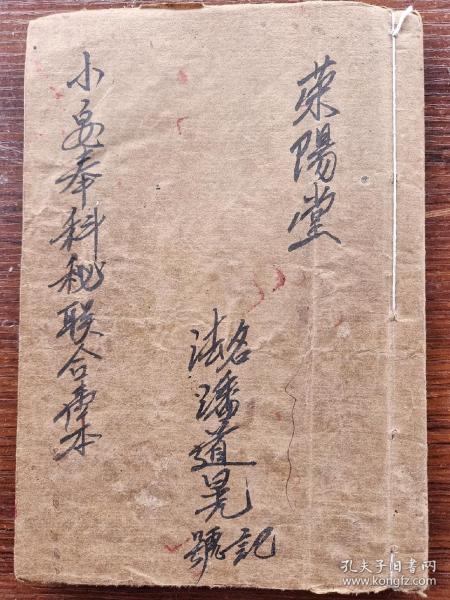 荣陽堂
法名潘道晃
號記
小安奉科秘联合書本
孔夫子旧书网
www.kongfz.com